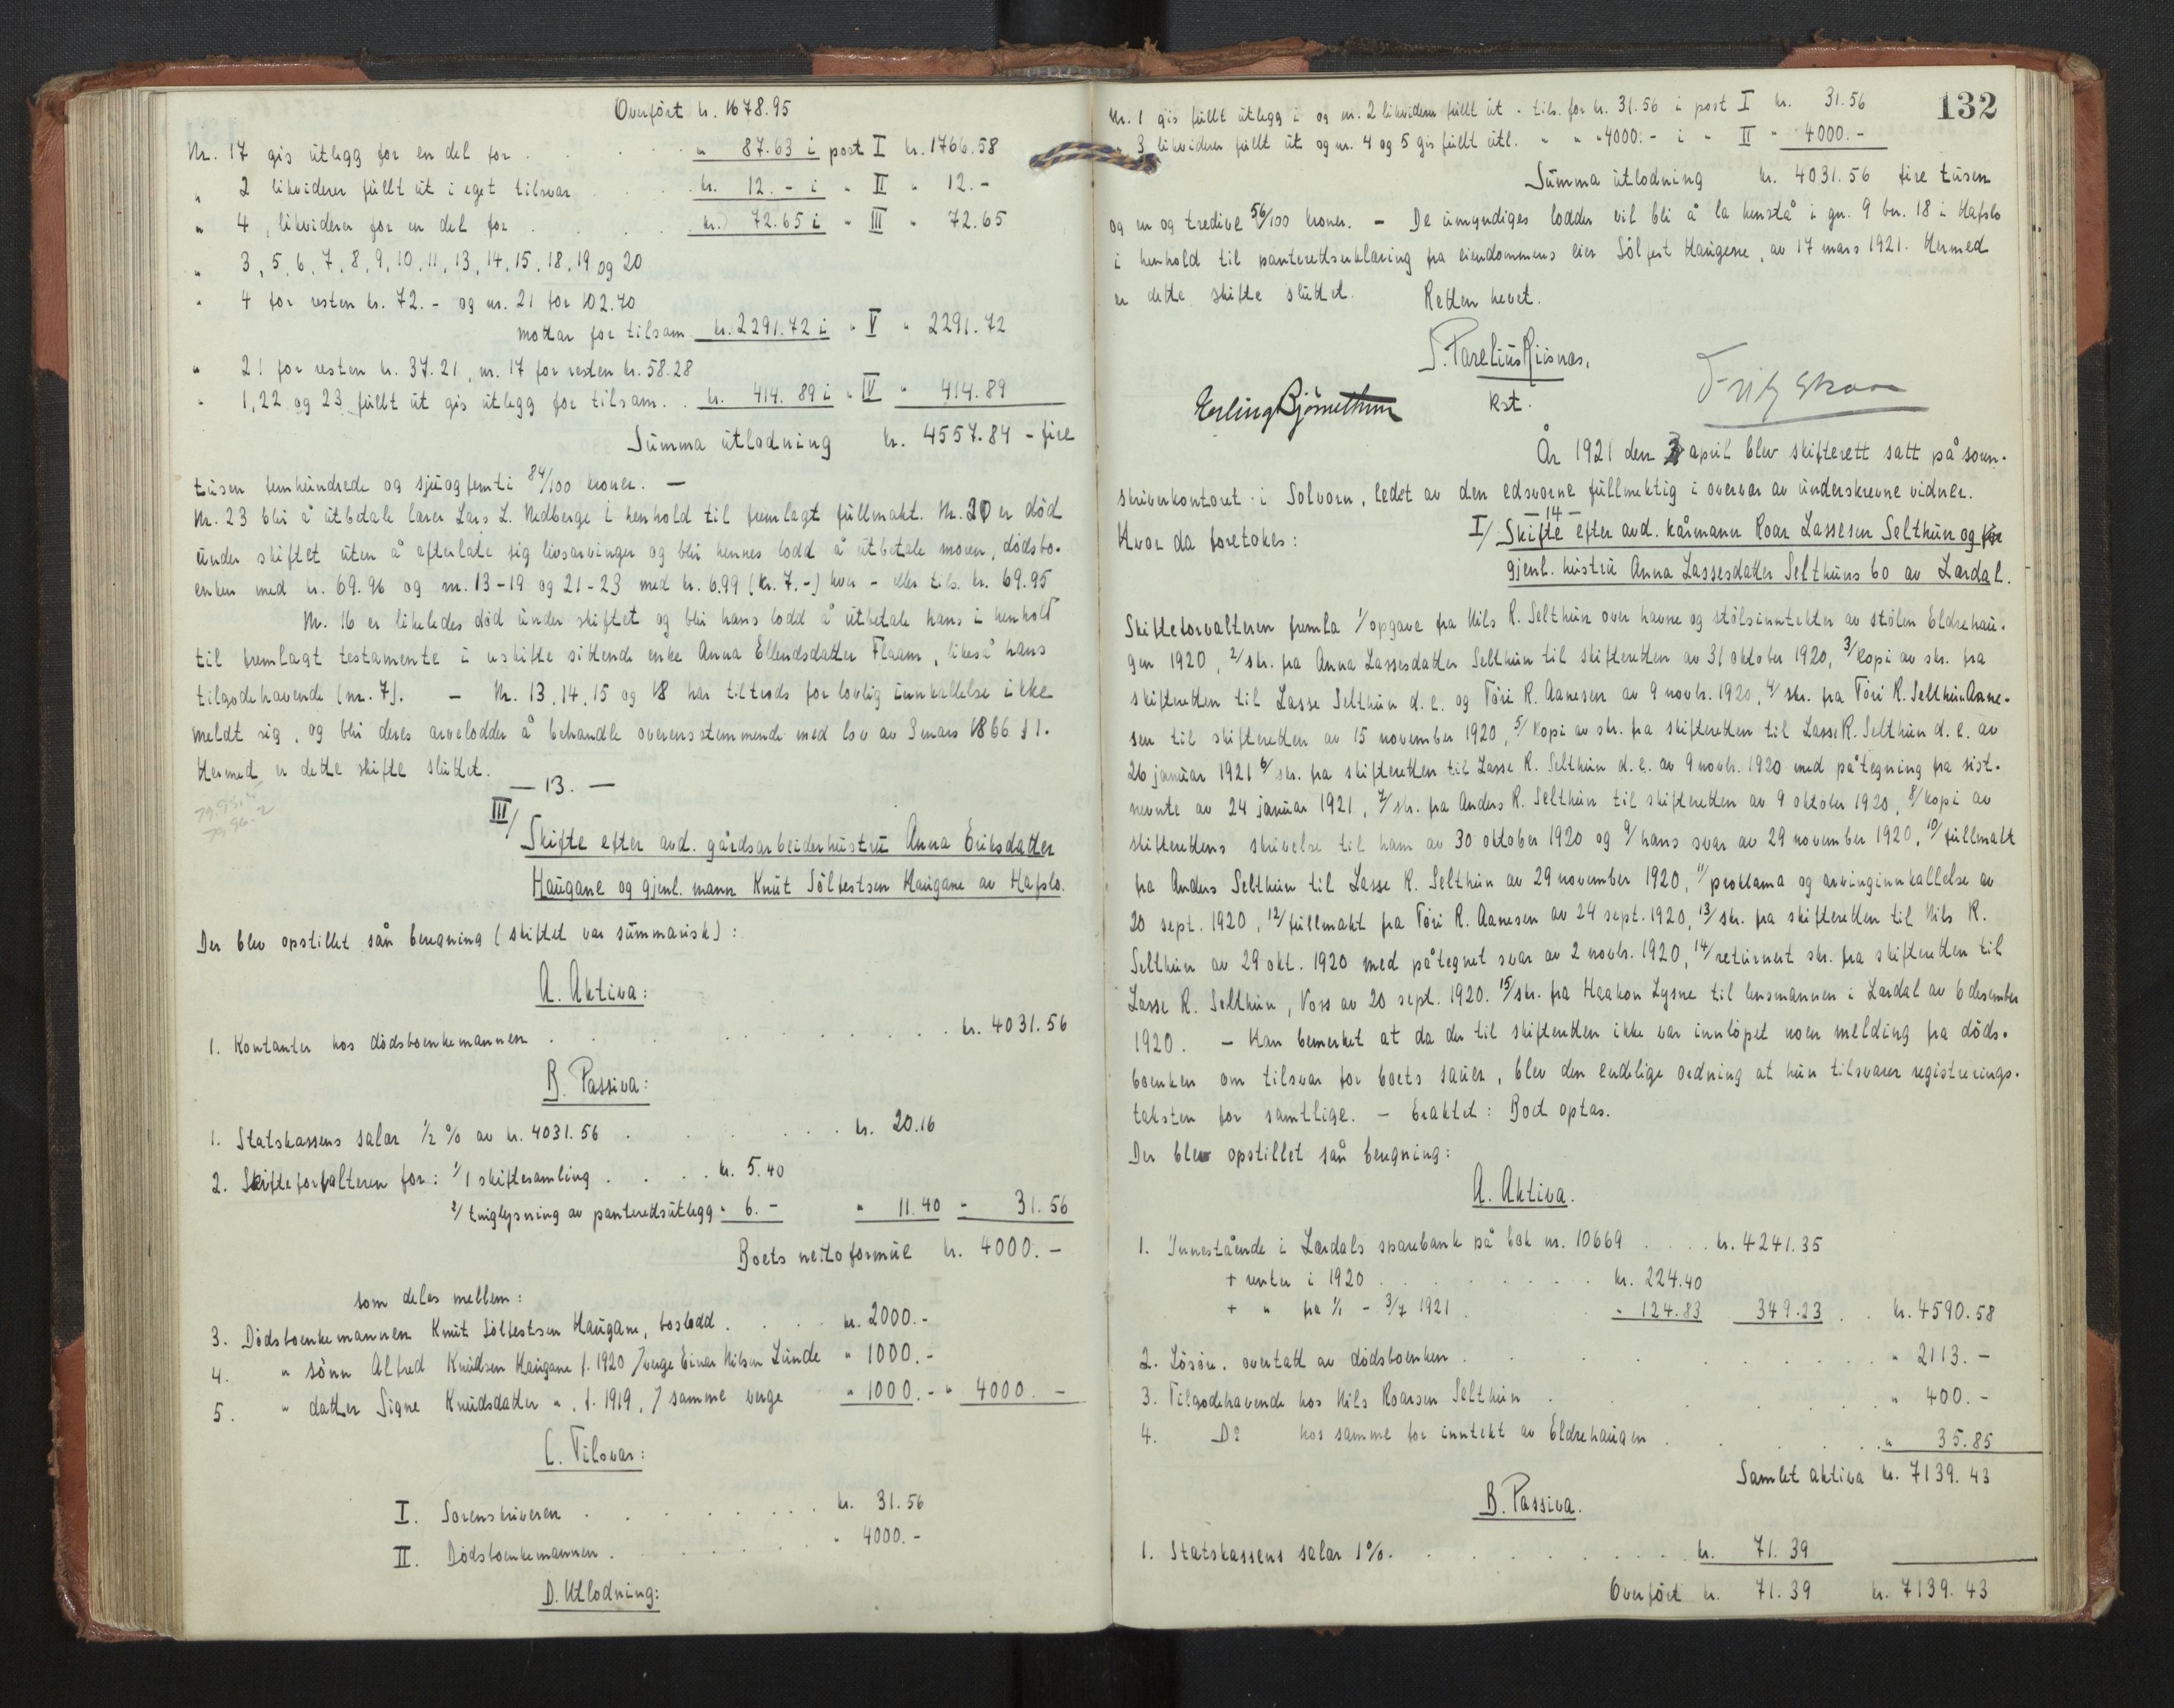 Overført kr. 1678.95
Nr. 17 gis utlegg for en del for . . . . " 87.63 i post I kr. 1766.58
" 2 likviderer fullt ut i eget tilsvar . . . kr. 12.- i " II " 12.-
" 4, likviderer for en del for . . . . kr. 72.65 i " III " 72.65
" 3, 5, 6, 7, 8, 9, 10, 11, 13, 14, 15, 18, 19 og 20
" 4 for resten kr. 72.- og nr. 21 for 102.70
mottar for tilsam. kr. 2291.72 i " V " 2291.72
" 21 for resten kr. 37.21, nr. 17 for resten kr. 58.28
" 1, 22 og 23 fullt ut gis utlegg for tilsam. . kr. 414.89 i " IV " 414.89
Summa utlodning kr. 4557.84 - fire
tusen femhundrede og sjuogfemti 84/100 kroner. —
Nr. 23 blir å utbetale lærer Lars L. Nedberge i henhold til fremlagt fullmakt. Nr. 20 er død
under skiftet uten å efterlate sig livsarvinger og blir hennes lodd å utbetale moren, dødsbo-
enken med kr. 69.96 og nr. 13-19 og 21-23 med kr. 6.99 (kr. 7.-) hver - eller tils. kr. 69.95
Nr. 16 er likeledes død under skiftet og blir hans lodd å utbetale hans i henhold
til fremlagt testamente i uskifte sittende enke Anna Ellendsdatter Flaam, likeså hans
tilgodehavende (nr. 7). — Nr. 13, 14, 15 og 18 har tiltrods for lovlig innkallelse ikke
meldt sig, og blir deres arvelodder å behandle overensstemmende med lov av 3 mars 1866 § 1.
Hermed er dette skifte sluttet.
— 13. —
III/ Skifte efter avd. gårdsarbeiderhustru Anna Eriksdatter
Haugane og gjenl. mann Knut Sölfestsen Haugane av Hafslo.
Der blev opstillet sån beregning (skiftet var summarisk):
A. Aktiva:
1. Kontanter hos dödsboenkemannen . . . . . . kr. 4031.56
B. Passiva:
1. Statskassens salær 1/2 % av kr. 4031.56 . . . . kr. 20.16
2. Skifteforvalteren for: 1/ 1 skiftesamling . . . . kr. 5.40
2/ tinglysning av panteretsutlegg " 6.- " 11.40 " 31.56
Boets nettoformue kr. 4000.-
som deles mellem:
3. Dödsboenkemannen Knut Sölfestsen Haugane, boslodd . . . kr. 2000.-
4. " sönn Alfred Knudsen Haugane f. 1920 / verge Einar Nilsen Lunde " 1000.-
5. " datter Signe Knudsdatter ", f. 1919, / samme verge " 1000.- " 4000.-
C. Tilsvar:
I. Sorenskriveren . . . . . . kr. 31.56
II. Dödsboenkemannen . . . . . " 4000.-
D. Utlodning:
132
Nr. 1 gis fullt utlegg i og nr. 2 likviderer fullt ut - tils. for kr. 31.56 i post I kr. 31.56
" 3 likviderer fullt ut og nr. 4 og 5 gis fullt utl. " " " 4000.- i " II " 4000.-
Summa utlodning kr. 4031.56 fire tusen
og en og tredive 56/100 kroner. — De umyndiges lodder vil bli å la henstå i gnr. 9 bnr. 18 i Hafslo
i henhold til panterettserklæring fra eiendommens eier Sölfest Haugene, av 17 mars 1921. Hermed
er dette skifte sluttet. Retten hevet.
S. Parelius Riisnæs,
kst.
Erling Bjørnethun
År 1921 den 3 april blev skifterett satt på soren-
skriverkontoret i Solvorn, ledet av den edsvorne fullmektig i overvær av underskrevne vidner.
Hvor da foretokes:
— 14 —
I/ Skifte efter avd. kårmann Roar Lassesen Selthun og
gjenl. hustru Anna Lassesdatter Selthuns bo av Lærdal.
Skifteforvalteren fremla 1/ opgave fra Nils R. Selthun over havne og stölsinntekter av stölen Eldrehau-
gen 1920, 2/ skr. fra Anna Lassesdatter Selthun til skifteretten av 31 oktober 1920, 3/ kopi av skr. fra
skifteretten til Lasse Selthun d.e. og Töri R. Aanesen av 9 novbr. 1920, 4/ skr. fra Töri R. Selthun Aane-
sen til skifteretten av 15 november 1920, 5/ kopi av skr. fra skifteretten til Lasse R. Selthun d.e. av
26 januar 1921 6/ skr. fra skifteretten til Lasse R. Selthun d.e. av 9 novbr. 1920 med påtegning fra sist-
nevnte av 24 januar 1921, 7/ skr. fra Anders R. Selthun til skifteretten av 9 oktober 1920, 8/ kopi av
skifterettens skrivelse til ham av 30 oktober 1920 og 9/ hans svar av 29 november 1920, 10/ fullmakt
fra Anders Selthun til Lasse R. Selthun av 29 november 1920, 11/ proklama og arvinginnkallelse av
20 sept. 1920, 12/ fullmakt fra Töri R. Aanesen av 24 sept. 1920, 13/ skr. fra skifteretten til Nils R.
Selthun av 29 okt. 1920 med påtegnet svar av 2 novbr. 1920, 14/ returnert skr. fra skifteretten til
Lasse R. Selthun, Voss av 20 sept. 1920. 15/ skr. fra Haakon Lysne til lensmannen i Lærdal av 6 desember
1920. — Han bemerket at da der til skifteretten ikke var innlöpet noen melding fra döds-
boenken om tilsvar for boets sauer, blev den endelige ordning at hun tilsvarer registrerings-
taksten for samtlige. — Eraktet: Boet optas.
Der blev opstillet sån beregning:
A. Aktiva.
1. Innestående i Lærdals sparebank på bok nr. 10669 . . . . kr. 4241.35
+ renter i 1920 . . . . . . . kr. 224.40
+ " fra 1/1 - 3/7 1921 . . . . " 124.83 349.23 . . kr. 4590.58
2. Lösöre, overtatt av dödsboenken . . . . . . " 2113.-
3. Tilgodehavende hos Nils Roarsen Selthun . . . . . " 400.-
4. Do hos samme for inntekt av Eldrehaugen . . . . . " 35.85
Samlet aktiva kr. 7139.43
B. Passiva.
1. Statskassens salær 1%. . . . . . . kr. 71.39
Overfört kr. 71.39 kr. 7139.43